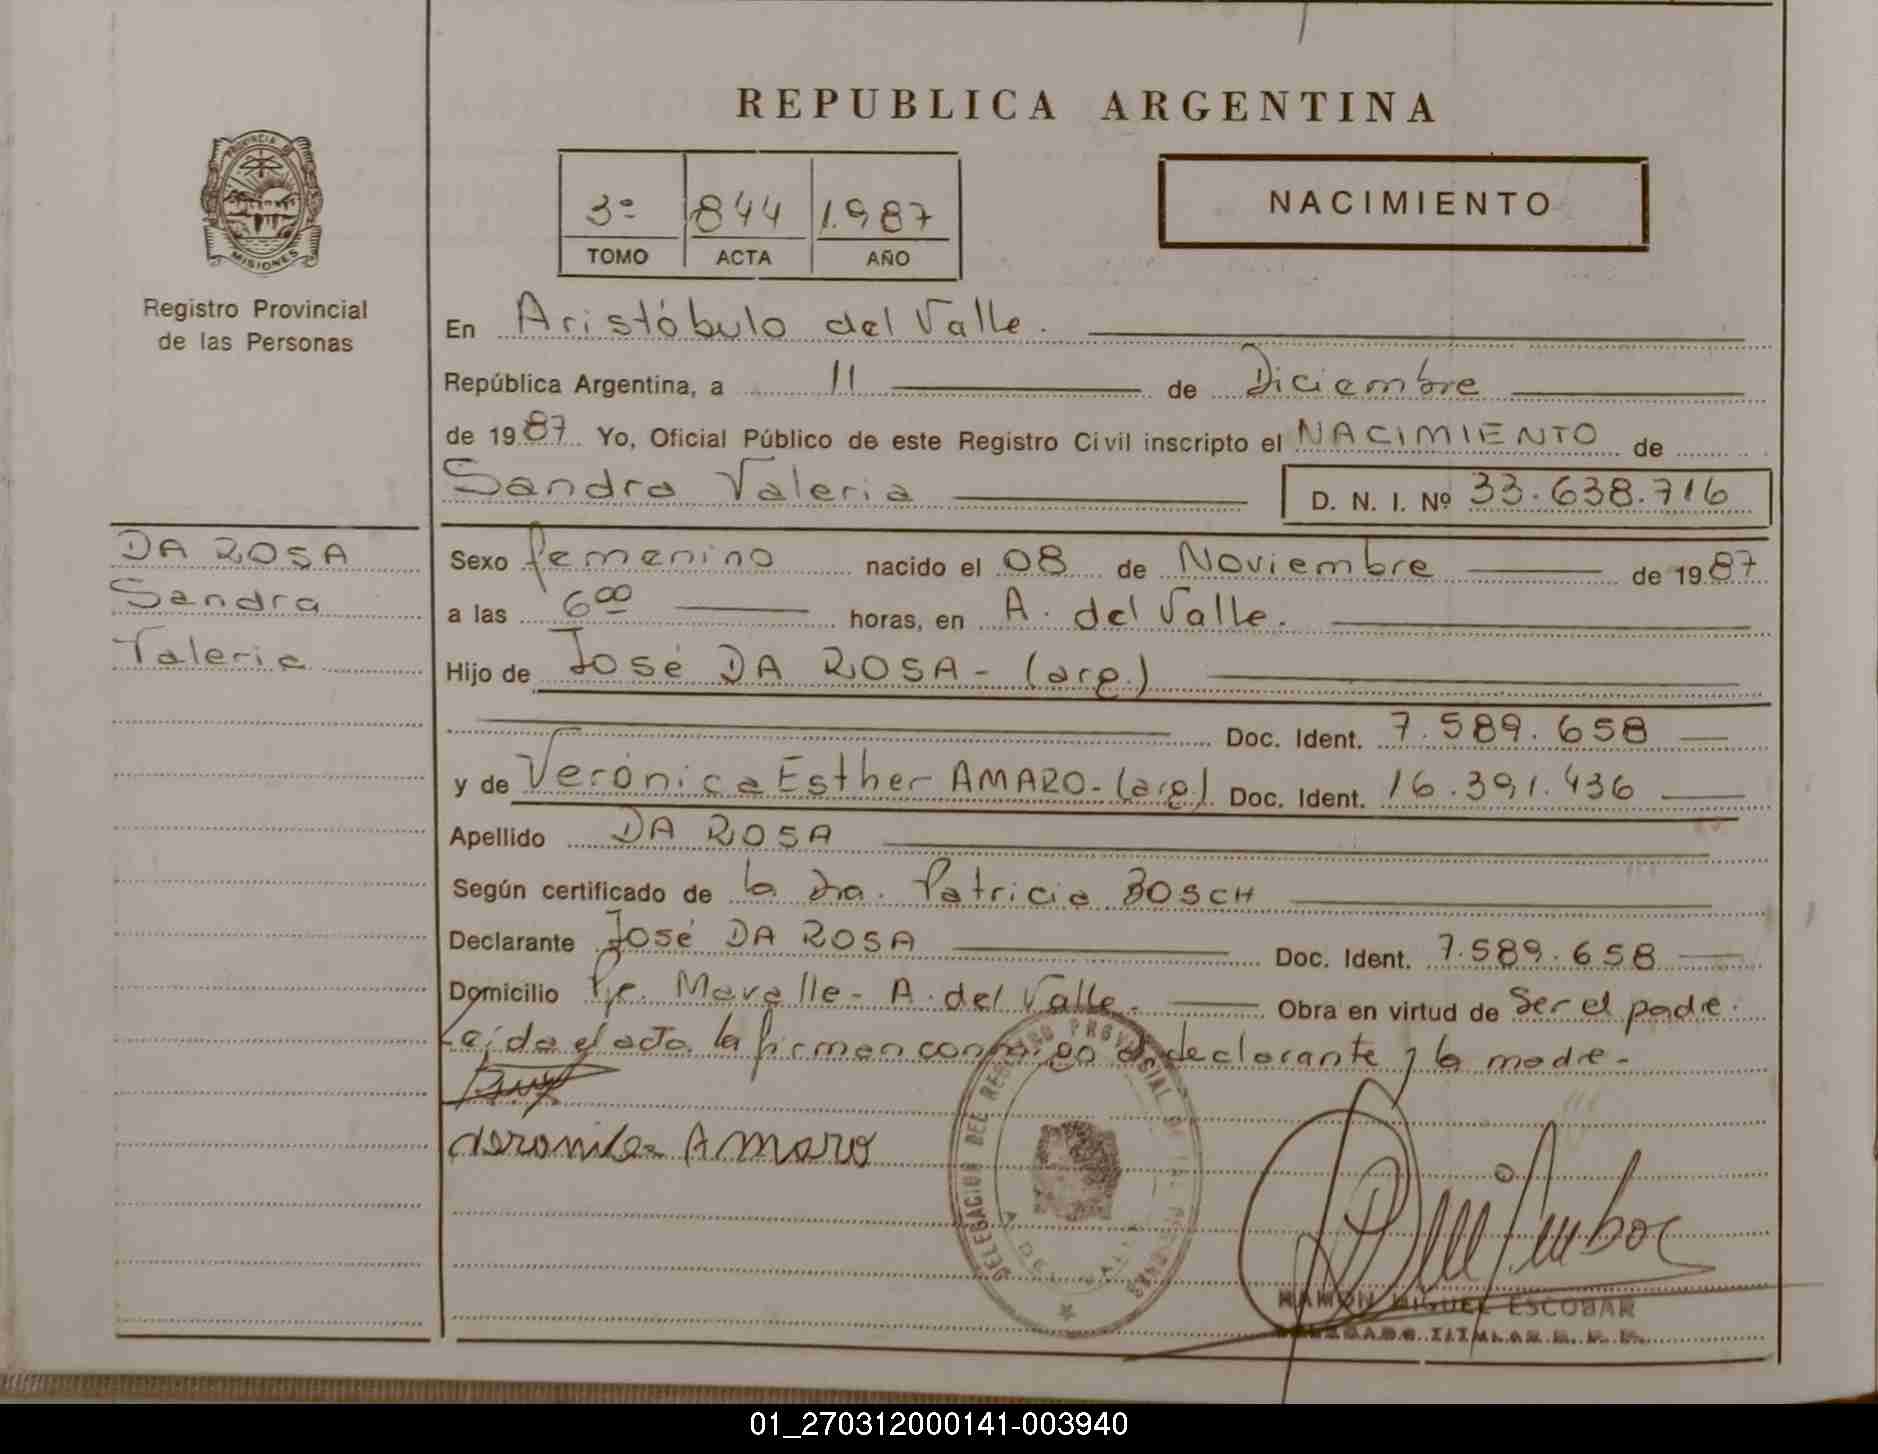 REPUBLICA ARGENTINA
PROVINCIA DE
MISIONES
Registro Provincial
de las Personas
3º 844 1.987
TOMO ACTA AÑO
NACIMIENTO
En Aristóbulo del Valle.
República Argentina, a 11 de Diciembre
de 1987 Yo, Oficial Público de este Registro Civil inscripto el NACIMIENTO de
Sandra Valeria D. N. I. Nº 33.638.716
DA ROSA
Sandra
Valeria
Sexo femenino nacido el 08 de Noviembre de 1987
a las 6 00 horas, en A. del Valle.
Hijo de José DA ROSA - (arg.)
Doc. Ident. 7.589.658
y de Verónica Esther AMARO - (arg.) Doc. Ident. 16.391.436
Apellido DA ROSA
Según certificado de la Dra. Patricia BOSCH
Declarante José DA ROSA Doc. Ident. 7.589.658
Domicilio A. del Valle. Obra en virtud de Ser el padre.
Leída el acta la firman conmigo el declarante y la madre.
Veronica Amaro
DELEGACION DEL REGISTRO PROVINCIAL DE LAS PERSONAS
A. DEL VALLE
RAMON MIGUEL ESCOBAR
DELEGADO TITULAR
01_270312000141-003940